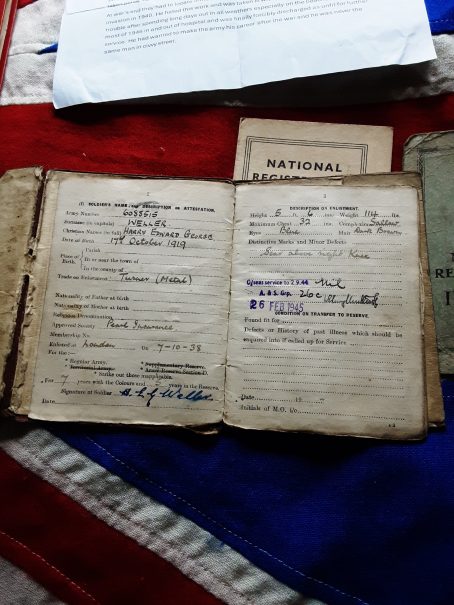 invasion in 1940. He hated this work and was taken ill with
trouble after spending long days out in all weathers especially on the
most of 1944 in and out of hospital and was finally forcibly discharged as unfit for further
service. He had wanted to make the army his career after the war and he was never the
same man in civvy street.
NATIONAL
2
(I). SOLDIER'S NAME AND DESCRIPTION ON ATTESTATION.
Army Number 6088515
Surname (in capitals) WELLER
Christian Names (in full) HARRY EDWARD GEORGE
Date of Birth 17th October 1919
Place of Birth
Parish
In or near the town of
In the county of
Trade on Enlistment Turner (Metal)
Nationality of Father at birth
Nationality of Mother at birth
Religious Denomination
Approved Society Pearl Insurance
Membership No.
Enlisted at London On 7-10-38
For the :—
* Regular Army. * Supplementary Reserve.
* Territorial Army. * Army Reserve Section D.
* Strike out those inapplicable.
For 7 years with the Colours and years in the Reserve.
Signature of Soldier H.E.G Weller
Date
3
DESCRIPTION ON ENLISTMENT.
Height 5 ft. 6 ins. Weight 114 lbs.
Maximum Chest 32 ins. Complexion Sallow
Eyes Blue Hair Dark Brown
Distinctive Marks and Minor Defects
Scar above right Knee
O/seas service to 2.9.44 Nil
26 FEB 1945
CONDITION ON TRANSFER TO RESERVE.
Found fit for
Defects or History of past illness which should be
enquired into if called up for Service
Date 19
Initials of M.O. i/c